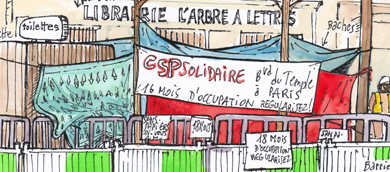 LIBRAIRIE L'ARBRE A LETTRES
toilettes
Bâches
GSP SOLIDAIRE
Bvd du Temple
à PARIS
16 MOIS D'OCCUPATION
RÉGULARISEZ
18 MOIS
D'OCCUPATION
RÉGULARISEZ
Barrie